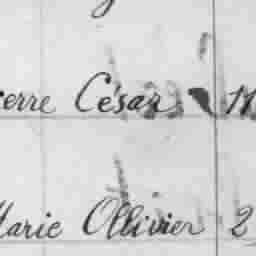 ierre César 11
Marie Ollivier 2